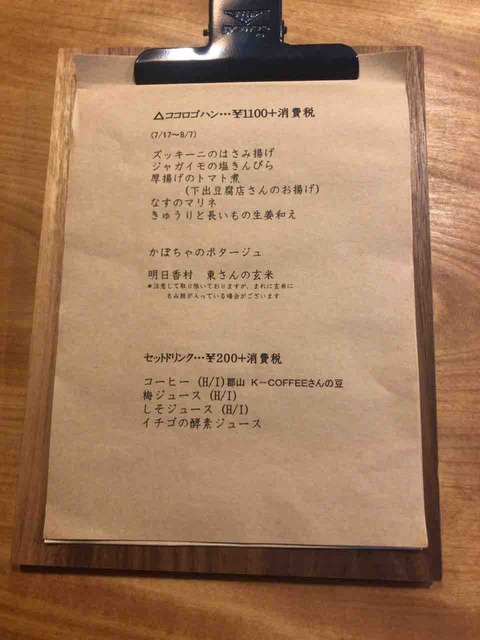 △ココロゴハン…¥1100+消費税
(7/17～8/7)
ズッキーニのはさみ揚げ
ジャガイモの塩きんぴら
厚揚げのトマト煮
(下出豆腐店さんのお揚げ)
なすのマリネ
きゅうりと長いもの生姜和え
かぼちゃのポタージュ
明日香村 東さんの玄米
*注意して取り除いておりますが、まれに玄米に
もみ殻が入っている場合がございます
セットドリンク…¥200+消費税
コーヒー (H/I) 郡山 K－COFFEEさんの豆
梅ジュース (H/I)
しそジュース (H/I)
イチゴの酵素ジュース